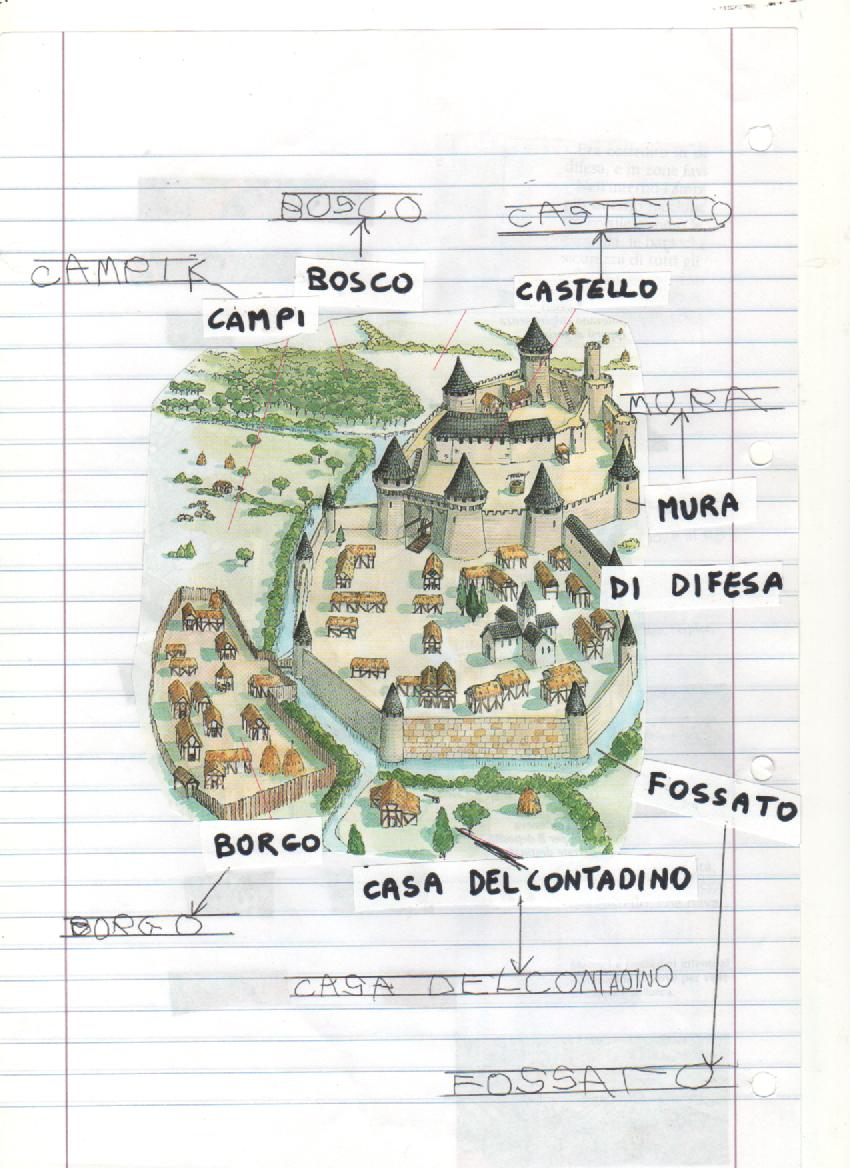 BOSCO
CASTELLO
CAMPI
BOSCO
CASTELLO
CAMPI
MURA
MURA
DI DIFESA
FOSSATO
BORGO
CASA DEL CONTADINO
BORGO
CASA DEL CONTADINO
FOSSATO